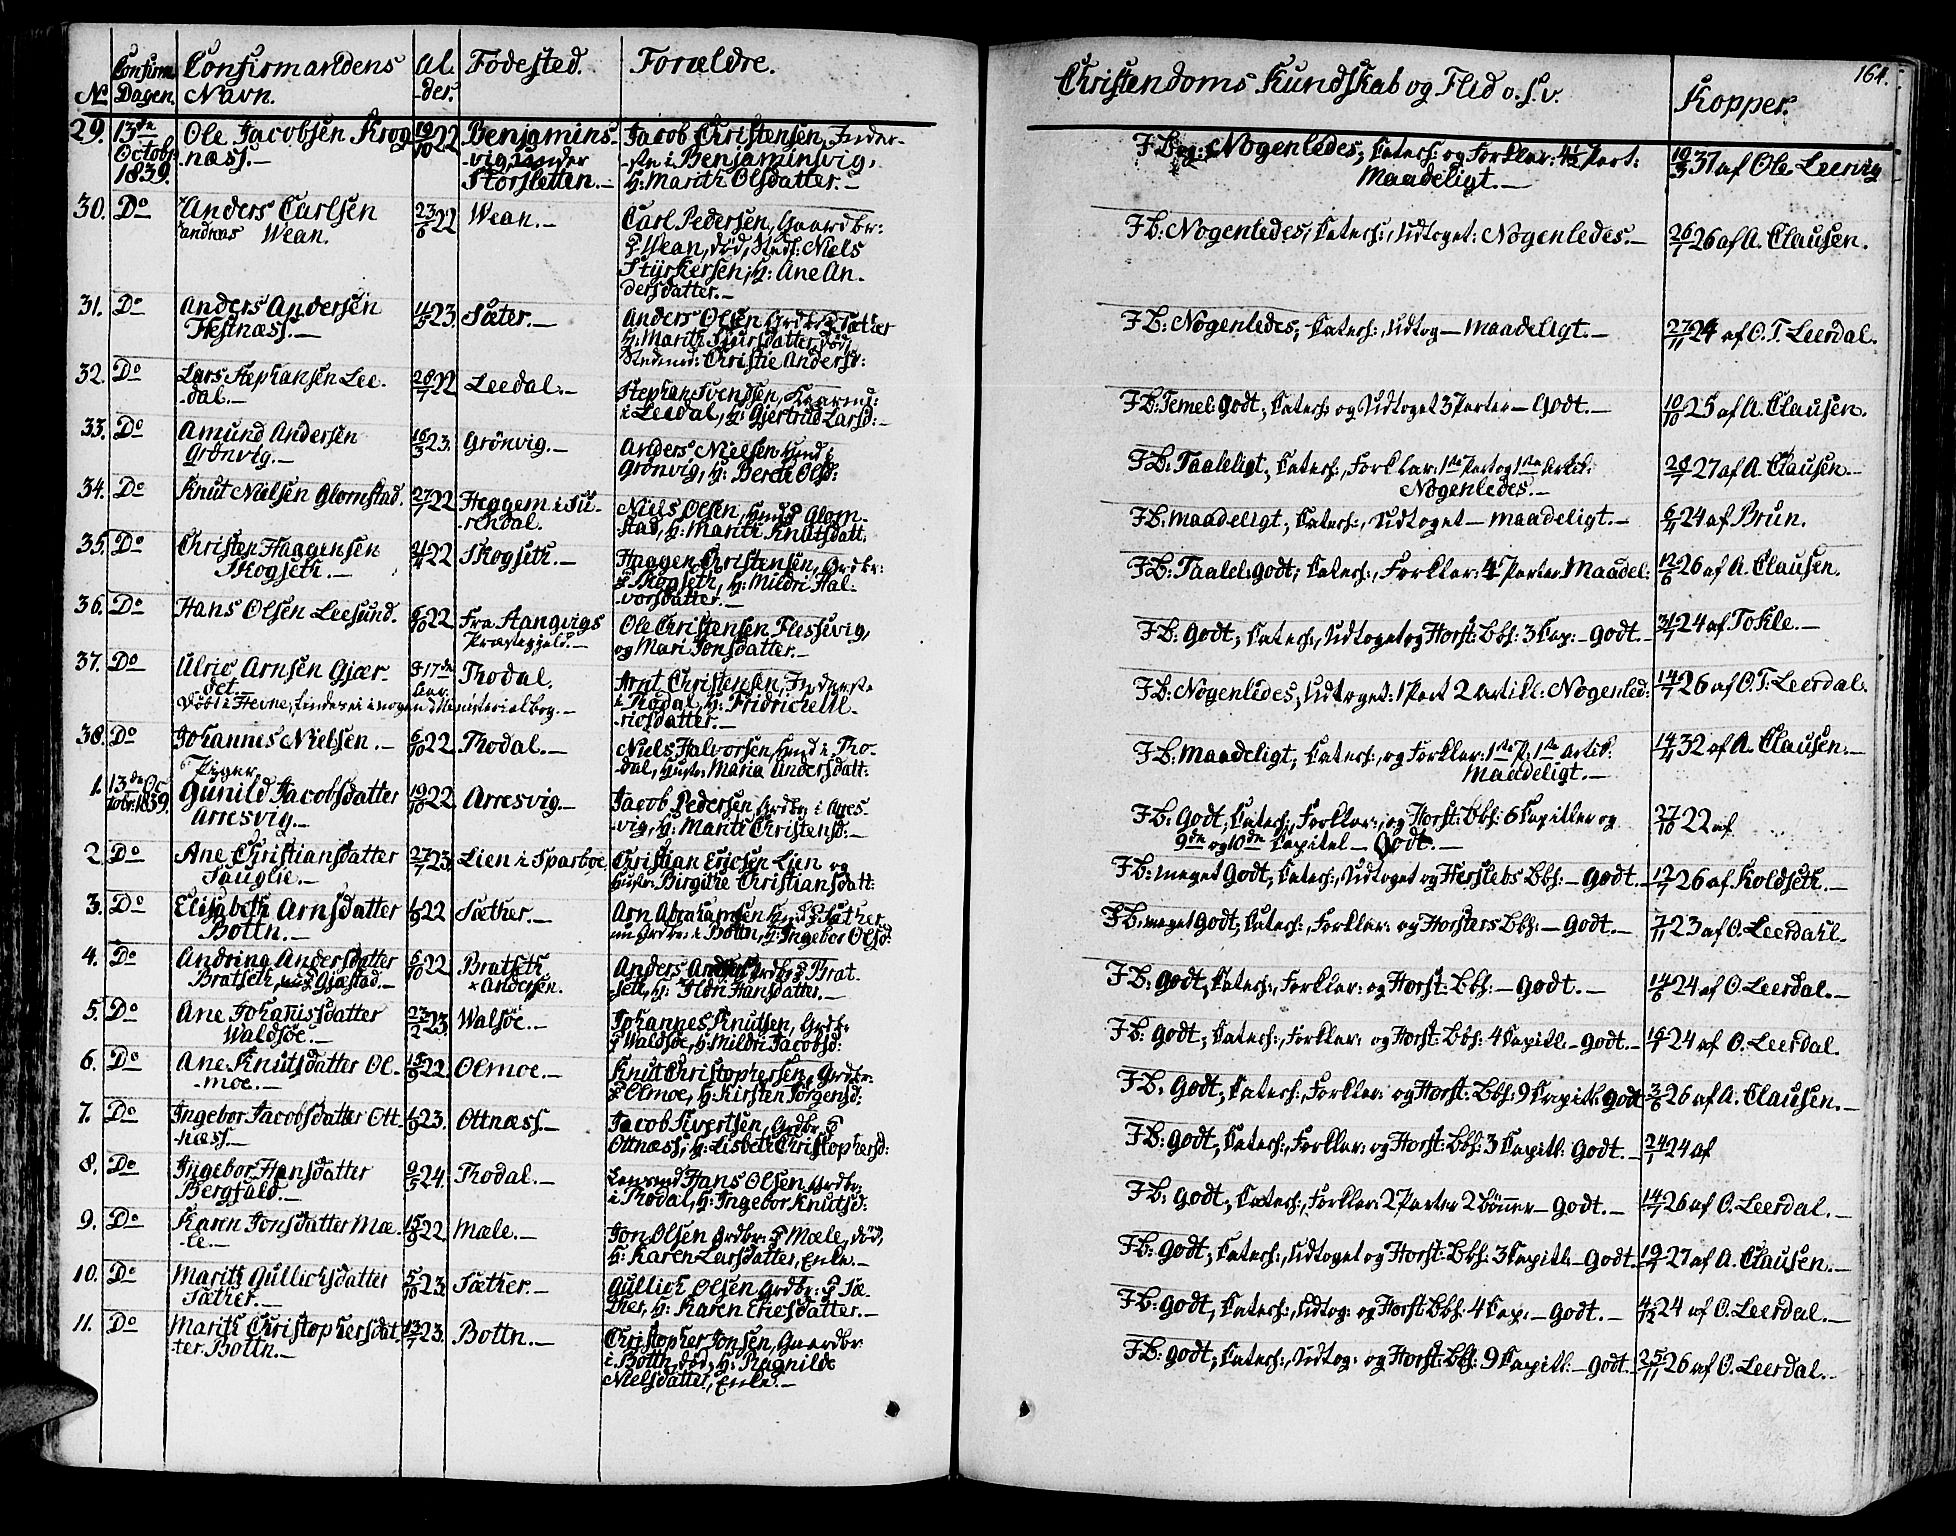 164.
No Confirm. Dagen. Confirmandens Navn. Al-der. Födested. Forældre. Christendoms Kundskab og Flid o.s.v. Kopper.
29. 13de Octobr. 1839. Ole Jacobsen Krognæss.— 19/10 22 Benjamins-vig under Storsletten.— Jacob Christensen, Inder-
ste i Benjaminsvig,
H: Marith Olsdatter.—
FB: Nogenledes, Catech: og Forklar: 4½ Part:
Maadeligt.—
37 af Ole Leervig
30. Do Anders Carlsen
Wean. 23/6 22 Wean.— Carl Pedersen, Gaardbr:
p Wean, död, Stedf: Niels
Styrkersen, H: Ane An-
dersdatter.—
FB: Nogenledes, Catech:, Udtoget: Nogenledes.— 26/1 26 af A. Clausen.
31. Do Anders Andersen
Hestnæss.— 4/5 23. Sæter.— Anders Olsen Grdbr p Sæther
H: Marith Siursdatter, död,
Stedmod: Christie Andersd:
FB: Nogenledes, Catech:, Udtog— maadeligt.— 27/11 24 af O. T. Leerdal.
32. Do Lars Stephansen Lee-
dal.— 28/7 22 Leedal.— Stephan Svendsen, Qvarnd:
i Leedal, H: Gjertrud Larsd:—
FB: Temel: godt, Catech: og Udtoget 3 Parter— Godt.— 10/10 25 af A. Clausen.
33. Do Amund Andersen
Grönvig.— 16/3 23. Grönvig.— Anders Nielsen Husmd i
Grönvig, H: Berith Olsd:
FB: Taaleligt, Catech:, Forklar: 1ste Part og 1ste Artik:
Nogenledes.—
28/7 27 af A. Clausen—
34. Do Knut Nielsen Glomstad. 27/7 22 Heggem i Su-
rendal. Niels Olsen, Husmd p Glom-
stad, H: Marith Knutsdatt.
FB: maadeligt, Catech:, Udtoget— maadeligt.— 6/11 24 af Brun.
35. Do Christen Haagensen
Skogseth.— 21/4 22 Skogseth.— Haagen Christensen, Grdbr:
p Skogseth, H: Mildri Hal-
vorsdatter.—
FB: Taalel: godt, Catech:, Forklar: 4 Parter Maadel: 12/6 26 af A. Clausen.
36. Do Hans Olsen Leesund. 6/10 22 Fra Stangvigs
Præstegjeld.— Ole Christensen Flessevig,
og Mari Jonsdatter.—
FB: Godt, Catech:, Udtoget og Horst: Bbh: 3 Cap:— Godt.— 31/7 24 af Tokle.—
37. Do Ulric Arnsen Gjær-
det.
Döbt i Hevne, findes ei i nogen Ministerialbog.—
i 17de Aar. Thodal. Arnt Christensen, Inderste
i Thodal, H: Fridriche Ul-
ricsdatter.—
FB: Nogenledes, Udtoget: 1 Part 2 Artikl: Nogenled: 14/7 26 af O. T. Leerdal.
38. Do Johannes Nielsen.— 6/10 22 Thodal.— Niels Halvorsen, Husmd i Tho-
dal, Hustr: Maria Andersdatt:
FB: maadeligt, Catech:, og Forklar: 1ste P: 1ste Artik.
Maadeligt.—
14/11 32 af A. Clausen.—
Piger
1. 13de Oc-
tobr. 1839. Gunild Jacobsdatter
Arresvig.— 19/10 22. Arresvig.— Jacob Pedersen Grdbr i Arres-
vig, H: Marith Christensd:—
FB: Godt, Catech:, Forklar:, og Horst: Bbh: 6 Capitler og
9de og 10de Capitel— Godt.—
27/10 22 af
2. Do Ane Christiansdatter
Saugli.— 27/7 23. Lien i Sparboe Christian Ericsen Lien og
Hustr: Birgithe Christiansdatt:
FB: meget Godt, Catech:, Udtoget og Herslebs Bbh:— Godt.— 12/7 26 af Koldseth.—
3. Do Elisabeth Arnsdatter
Bottn.— 1/9 22 Sæther.— Arn Abrahamsen Husmd p Sæther
nu Grdbr: i Bottn, H: Ingebor Olsd:
FB: meget Godt, Catech:, Forklar: og Horsters Bbh:— Godt.— 7/11 23 af O. Leerdahl.
4. Do Andrina Andersdatter
Bratseth, Gjøstad.— 6/10 22 Bratseth
× Andersen. Anders Grdbr p Brat-
seth, H: Ildri Hansdatter.—
FB: Godt, Catech:, Forklar: og Horst: Bbh:— Godt.— 14/6 24 af O. Leerdal.—
5. Do Ane Johanisdatter
Waldsöe.— 23/2 23. Walsöe.— Johannes Knutsen, Grdbr
p Waldsöe, H: Mildri Jacobsd:
FB: Godt, Catech:, Forklar: og Horst: Bbh: 4 Capitl:— Godt.— 16/7 24 af O. Leerdal.
6. Do Ane Knutsdatter Ol-
moe.— 15/9 22. Olmoe.— Knut Christophersen, Grdbr
p Olmoe, H: Kirsten Jörgensd:
FB: Godt, Catech:, Forklar: og Horst: Bbh: 9 Capitl: Godt 3/6 26 af A. Clausen.—
7. Do Ingebor Jacobsdatter Ott-
næss.— 1/6 23. Ottnæss.— Jacob Sivertsen, Grdbr p
Ottnæss, H: Lisbeth Christophersd:
FB: Godt, Catech:, Forklar: og Horst: Bbh: 3 Capitl: Godt.— 24/1 24 af
8. Do Ingebor Hansdatter
Bergfald.— 9/5 24. Thodal.— Lensmd Hans Olsen Grdbr:
i Thodal, H: Ingebor Knutsd:
FB: Godt, Catech:, Forklar: 2 Parter 2 Bönner— Godt.— 14/7 26 af O. Leerdal.—
9. Do Karen Jonsdatter Mæ-
le.— 15/9 22 Mæle.— Jon Olsen Grdbr: p Mæle, död,
H: Karen Larsdatter, Enke.—
FB: Godt, Catech:, Udtoget og Horst: Bbh: 3 Capitl:— Godt.— 19/7 27 af A. Clausen.—
10. Do Marith Gullichsdatter
Sæther.— 5/10 23. Sæther.— Gullich Olsen Grdbr: p Sæ-
ther, H: Karen Eriesdatter.—
FB: Godt, Catech:, Udtog: og Horst: Bbh: 4 Cap:— Godt.— 4/12 24 af O. Leerdal.—
11. Do Marith Christophersdat-
ter Bottn.— 13/7 23. Bottn.— Christopher Jonsen, Gaardbr
i Bottn, död, H: Ragnilde
Nielsdatter, Enke.—
FB: Godt, Catech:, Udtog: og Horst: Bbh: 9 Capitl:— Godt.— 25/11 26 af O. Leerdal.—